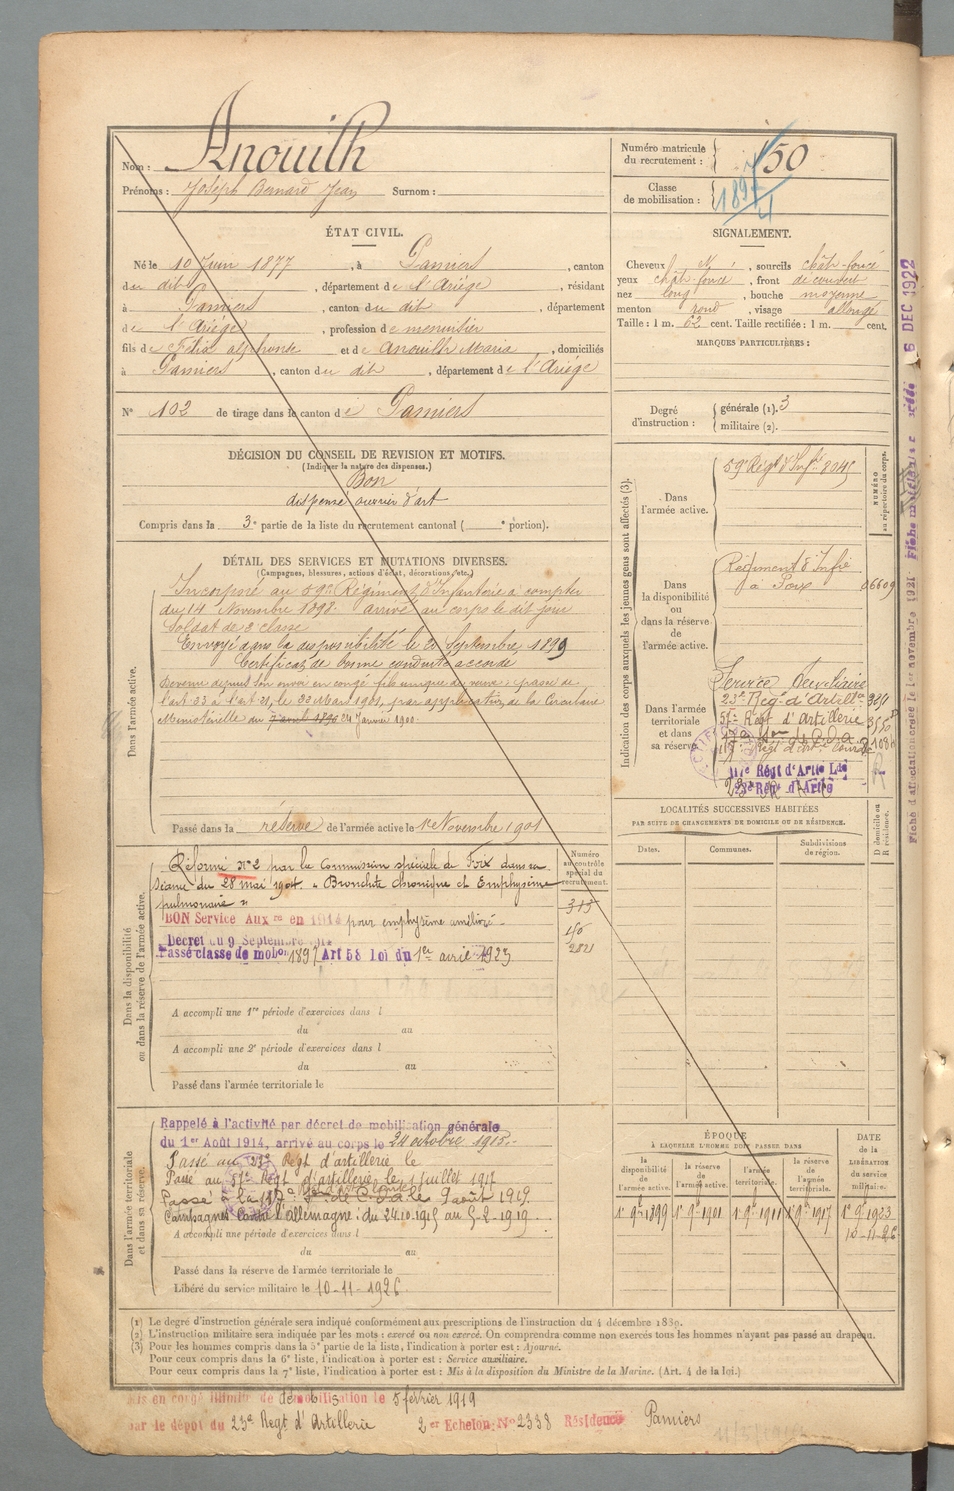 Nom : Anouilh
Prénoms : Joseph Bernard Jean Surnom :
Numéro matricule du recrutement : 150
Classe de mobilisation : 1897
ÉTAT CIVIL.
Né le 10 Juin 1877, à Pamiers, canton
du dit, département de l'Ariége, résidant
à Pamiers, canton du dit, département
de l'Ariége, profession de menuisier
fils de Félix alphonse et de Anouilh Maria, domiciliés
à Pamiers, canton du dit, département de l'Ariége
N° 102 de tirage dans le canton de Pamiers
SIGNALEMENT.
Cheveux N, sourcils chât-foncé
yeux chât-foncé, front découvert
nez long, bouche moyenne
menton rond, visage allongé
Taille : 1 m. 62 cent. Taille rectifiée : 1 m. cent.
MARQUES PARTICULIÈRES :
Degré d'instruction : générale (1). 3
militaire (2).
DÉCISION DU CONSEIL DE REVISION ET MOTIFS.
(Indiquer la nature des dispenses.)
Bon
dispensé ouvrier d'art
Compris dans la 3e partie de la liste du recrutement cantonal ( e portion).
DÉTAIL DES SERVICES ET MUTATIONS DIVERSES.
(Campagnes, blessures, actions d'éclat, décorations, etc.)
Dans l'armée active.
Incorporé au 59e Régiment d'Infanterie à compter
du 14 Novembre 1898. arrivé au corps le dit jour
Soldat de 2e classe
Envoyé dans la disponibilité le 2 Septembre 1899
Certificat de bonne conduite accordé
Devenu depuis son envoi en congé fils unique de veuve : passé de
l'art. 23 à l'art 21, le 22 Mars 1901, par application de la Circulaire
Ministérielle du 7 avril 1890 24 Janvier 1900.
Passé dans la réserve de l'armée active le 1er Novembre 1901
Indication des corps auxquels les jeunes gens sont affectés (3).
NUMÉRO au répertoire du corps.
Dans l'armée active.
59e Régt d'Infie 8045
Dans la disponibilité ou dans la réserve de l'armée active.
Régiment d'Infie
à Foix 06609
Dans l'armée territoriale et dans sa réserve.
Service Auxiliaire
23e Régt d'Artillie
57e Regt d'Artillerie
117e Régt d'Artie Lde
23e Régt d'Artie
Dans la disponibilité ou dans la réserve de l'armée active.
Réformé n°2 par la Commission spéciale de Foix dans sa
séance du 28 mai 1904 « Bronchite chronique et Emphysème
pulmonaire »
BON Service Auxre en 1914 pour emphysème amélioré
Décret du 9 Septembre 1914
Passé classe de mobon 1897 Art 58 loi du 1er avril 1923
Numéro au contrôle spécial du recrutement.
315
2821
A accompli une 1re période d'exercices dans l
du au
A accompli une 2e période d'exercices dans l
du au
Passé dans l'armée territoriale le
LOCALITÉS SUCCESSIVES HABITÉES
PAR SUITE DE CHANGEMENTS DE DOMICILE OU DE RÉSIDENCE.
Dates. Communes. Subdivisions de région. D domicile ou R résidence.
Dans l'armée territoriale et dans sa réserve.
Rappelé à l'activité par décret de mobilisation générale
du 1er Août 1914, arrivé au corps le 24 octobre 1915.
Passé au 23e Régt d'artillerie le
Passé au 57e Regt d'artillerie, le 1 juillet 1917
Campagnes Contre l'allemagne : du 24.10.1915 au 5-2-1919
A accompli une période d'exercices dans l
du au
Passé dans la réserve de l'armée territoriale le
Libéré du service militaire le 10-11-1926
ÉPOQUE
À LAQUELLE L'HOMME DOIT PASSER DANS
la disponibilité de l'armée active. la réserve de l'armée active. l'armée territoriale. la réserve de l'armée territoriale. DATE de la LIBÉRATION du service militaire.
1er 9bre 1899 1er 9bre 1901 1er 9bre 1911 1er 9bre 1917 1er 9bre 1923
10-11-26
(1) Le degré d'instruction générale sera indiqué conformément aux prescriptions de l'instruction du 4 décembre 1889.
(2) L'instruction militaire sera indiquée par les mots : exercé ou non exercé. On comprendra comme non exercés tous les hommes n'ayant pas passé au drapeau.
(3) Pour les hommes compris dans la 5e partie de la liste, l'indication à porter est : Ajourné.
Pour ceux compris dans la 6e liste, l'indication à porter est : Service auxiliaire.
Pour ceux compris dans la 7e liste, l'indication à porter est : Mis à la disposition du Ministre de la Marine. (Art. 4 de la loi.)
Mis en congé illimité de démobilisation le 5 février 1919
par le dépôt du 23e Regt d'Artillerie 2er Echelon, N° 2338 Résidence Pamiers
6 DEC 1922